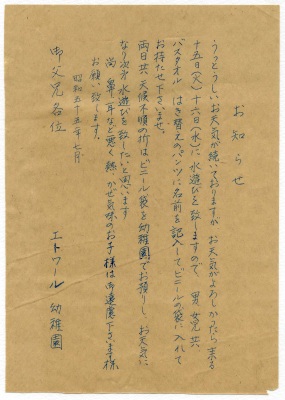 お知らせ
うっとうしいお天気が続いておりますが お天気がよろしかったら 来る
十五日(火)十六日(水)に水遊びを致しますので、男女児共
バスタオル はき替えのパンツに名前を記入して、ビニールの袋に入れて
お持たせ下さいませ。
両日共 天候不順の折はビニール袋を幼稚園でお預りし、お天気に
なり次第 水遊びを致したいと思います
尚 鼻、耳など悪く熱、かぜ気味のお子様は御遠慮下さいます様
お願い致します。
昭和五十五年 七月
御父兄各位
エトワール 幼稚園